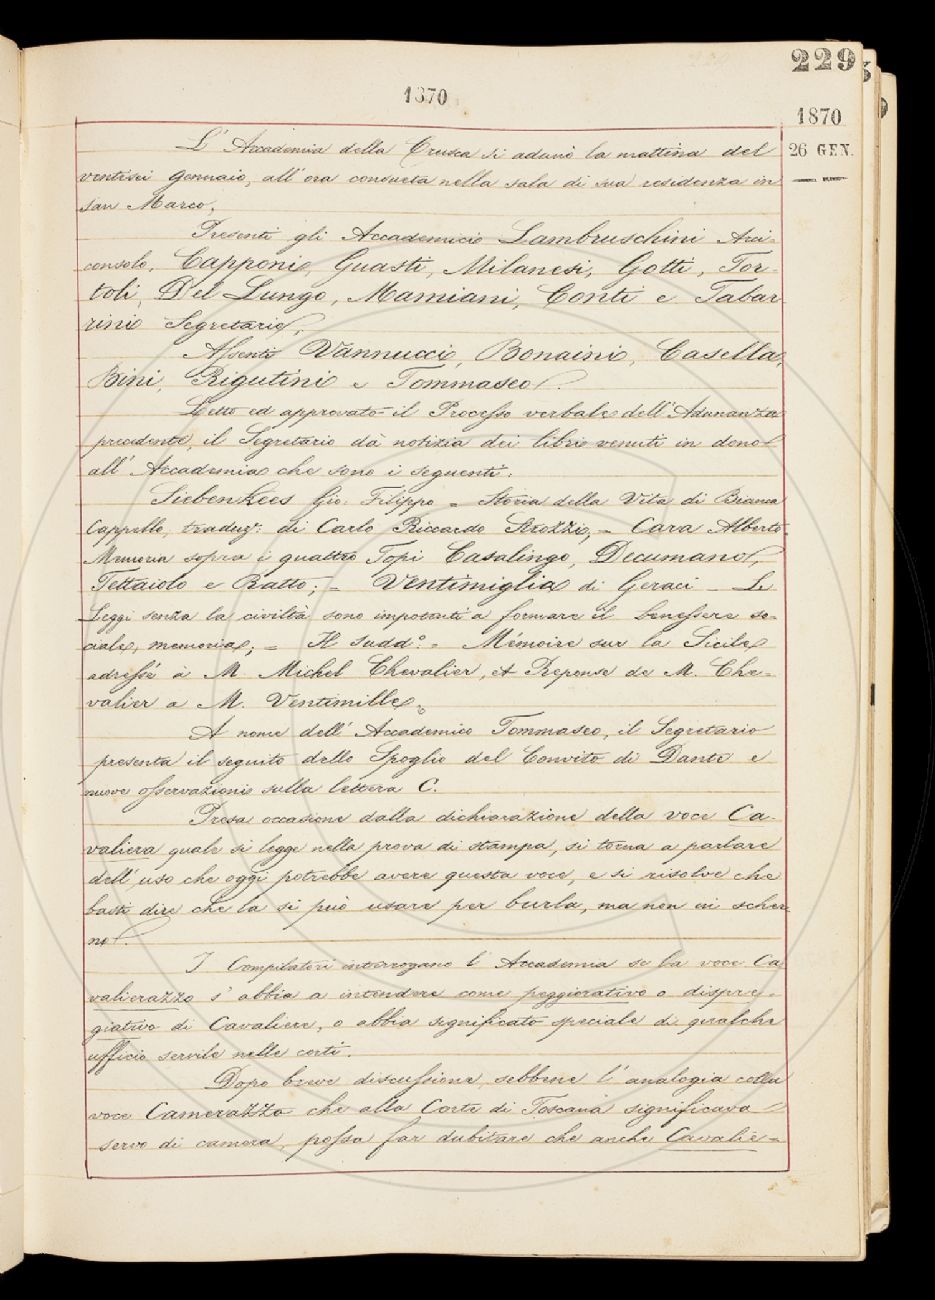 229
1870
1870
26 GEN.
L' Accademia della Crusca si adunò la mattina del
ventisei Gennaio, all' ora consueta nella sala di sua residenza in
San Marco.
Presenti gli Accademici Lambruschini Arci-
consolo, Capponi, Guasti, Milanesi, Gotti, Tor-
toli, Del Lungo, Mamiani, Conti e Tabar
rini Segretario.
Assenti Vannucci, Bonaini, Casella,
Bini, Rigutini e Tommaseo.
Letto ed approvato il Processo verbale dell' Adunanza
precedente, il Segretario dà notizia dei libri venuti in dono
all' Accademia che sono i seguenti.
SiebenKees Gio. Filippo = Storia della Vita di Bianca
Cappello, traduz: di Carlo Riccardo Strozzi; = Cara Alberto
Memoria sopra i quattro Topi Casalingo, Decumano,
Tettaiolo e Ratto; = Ventimiglia di Geraci = Le
Leggi senza la civiltà sono impotenti a formare il benessere so-
ciale, memoria; = Il sudd.º = Mémoire sur la Sicile
adressé à M. Michel Chevalier, et Reponse de M. Che-
valier a M. Ventimille.
A nome dell' Accademico Tommaseo, il Segretario
presenta il seguito dello Spoglio del Convito di Dante e
nuove osservazioni sulla lettera C.
Presa occasione dalla dichiarazione della voce Ca-
valiera quale si legge nella prova di stampa, si torna a parlare
dell' uso che oggi potrebbe avere questa voce, e si risolve che
basti dire che la si può usare per burla, ma non in scher-
no.
I Compilatori interrogano l' Accademia se la voce Ca
valierazzo s' abbia a intendere come peggiorativo o dispre-
giativo di Cavaliere, o abbia significato speciale di qualche
ufficio servile nelle corti.
Dopo breve discussione, sebbene l' analogia colla
voce Camerazzo che alla Corte di Toscana significava
servo di camera, possa far dubitare che anche Cavalie=